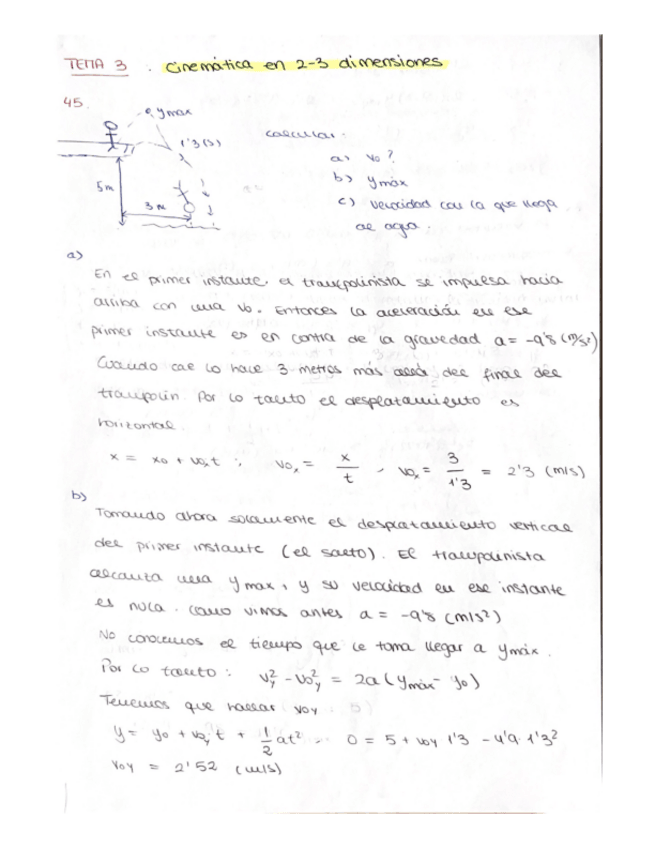 TEMA 3 . Cinemática en 2-3 dimensiones
45.
ymax
1'3(s)
5m
3m
calcular:
a) v₀?
b) ymáx
c) velocidad con la que llega
al agua.
a)
En el primer instante, el trampolinista se impulsa hacia
arriba con una v₀. Entonces la aceleración en ese
primer instante es en contra de la gravedad a = -9'8 (m/s²)
Cuando cae lo hace 3 metros más allá del final del
trampolín. Por lo tanto el desplazamiento es
horizontal.
x = x₀ + v₀ₓt ; v₀ₓ = x/t , v₀ₓ = 3/1'3 = 2'3 (m/s)
b)
Tomando ahora solamente el desplazamiento vertical
del primer instante (el salto). El trampolinista
alcanza una ymax, y su velocidad en ese instante
es nula. Como vimos antes a = -9'8 (m/s²)
No conocemos el tiempo que le toma llegar a ymáx.
Por lo tanto: v_y² - v₀_y² = 2a (ymáx - y₀)
Tenemos que hallar v₀y
y = y₀ + v₀_y t + 1/2 at² 0 = 5 + v₀y 1'3 - 4'9 · 1'3²
v₀y = 2'52 (m/s)